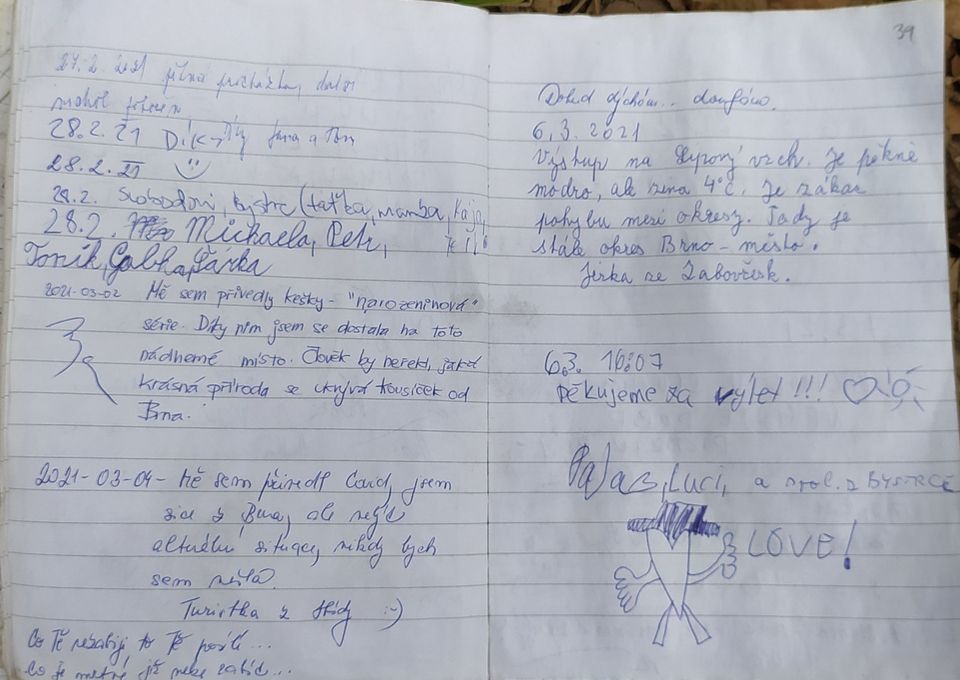 27.2. 2021 pěkná procházka,
28.2.21 Díky Jana a Tom
28.2.21
28.2. Slobodovi, Bystrc (taťka, mamka, Kája,
28.2. Michaela, Petr,
Toník, Gabka, Šárka
2021-03-02 Mě sem přivedly kešky - "narozeninová"
série. Díky nim jsem se dostala na toto
nádherné místo. Člověk by neřekl, jaká
krásná příroda se ukrývá kousíček od
Brna.
2021-03-04 - Mě sem přivedl Covid, jsem
sice z Brna, ale nebýt
aktuální situace, nikdy bych
sem nešla.
Turistka z :-)
Co Tě nezabije to Tě posílí...
Co je mrtvé, již nelze zabít...
39
Dokud dýchám... doufám.
6.3. 2021
Výstup na Lipový vrch. Je pěkně
modro, ale zima 4°C. Je zákaz
pohybu mezi okresy. Tady je
stále okres Brno - město.
Jirka ze Žabovřesk.
6.3. 16:07
Děkujeme za výlet!!!
Luci, a spol. z BYSTRCE
LOVE!